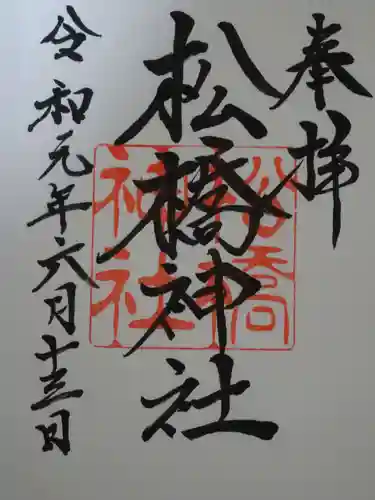 奉拝
松橋神社
松橋神社
令和元年六月十三日